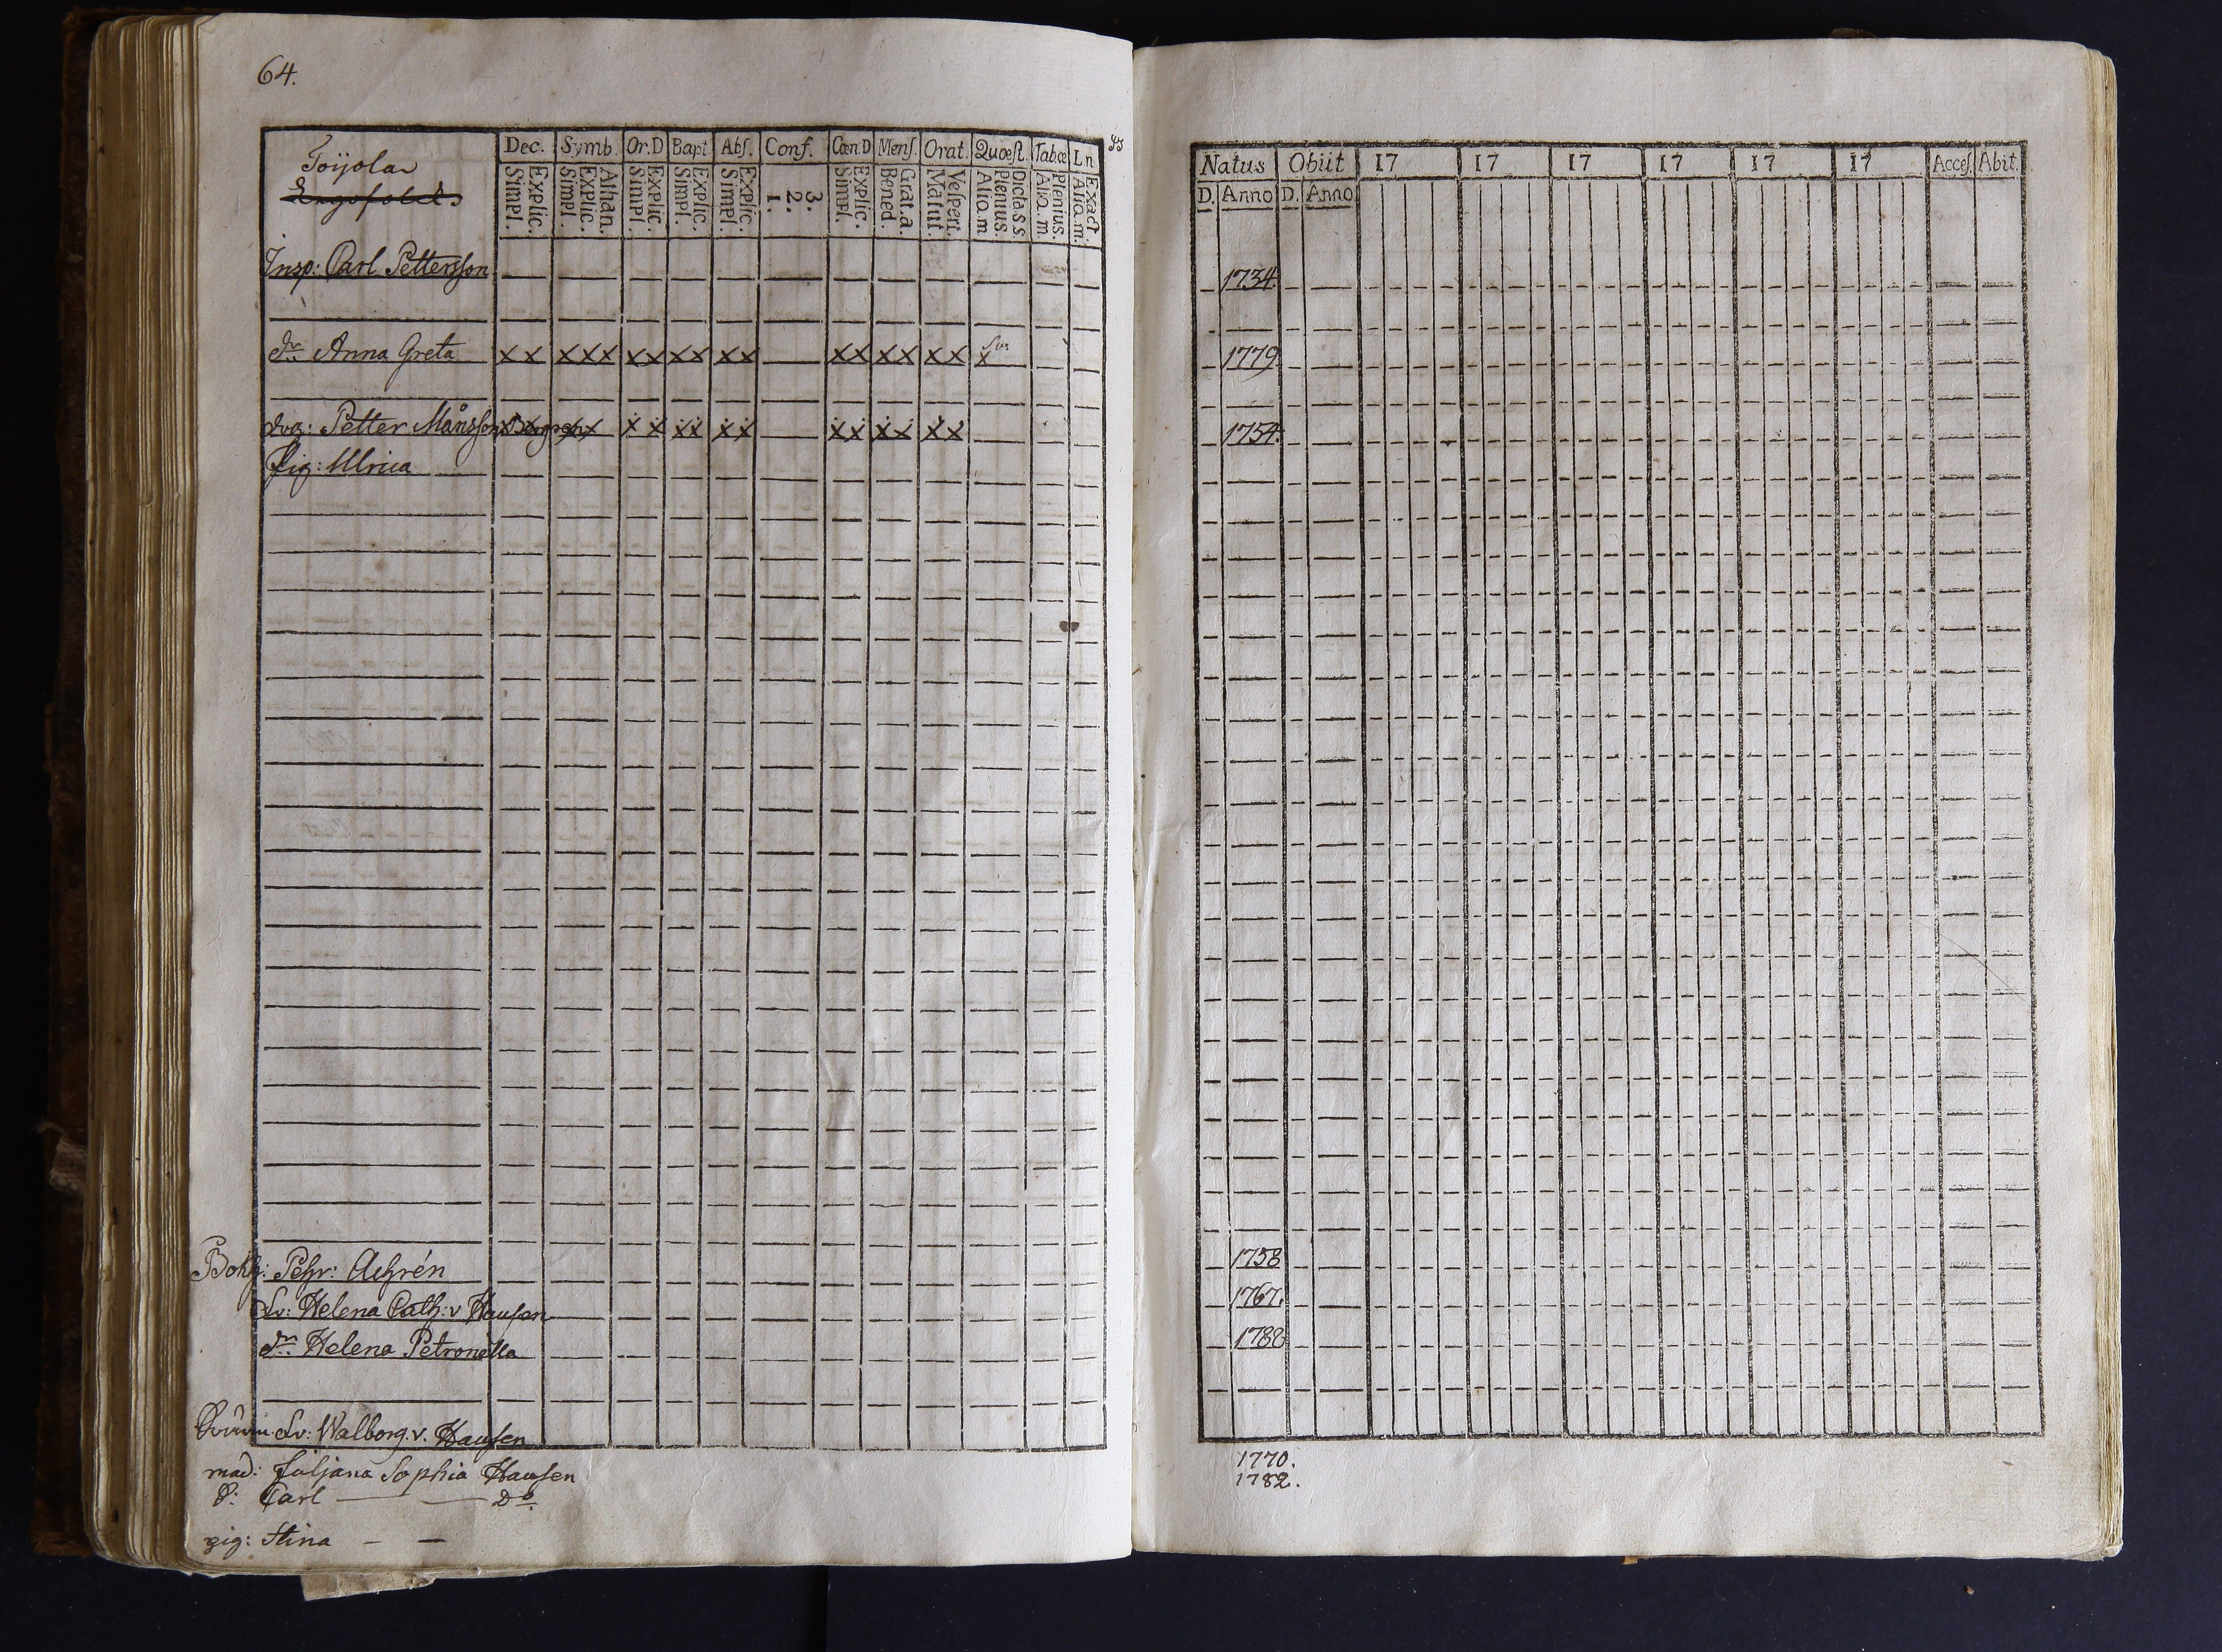 64.
Toijola
Dec. Symb. Or.D Bapt Abs. Conf. Cœn.D Mens. Orat. Quæst. Tabœ Ln
Simpl. Explic. Simpl. Explic. Athan. Simpl. Explic. Simpl. Explic. Simpl. Explic. 1. 2. 3. Simpl. Explic. Bened. Grat.a. Matut. Vespert. Alio.m Plenius. Dicta.s.s. Alio.m. Plenius. Alio.m. Exact.
Insp: Carl Pettersson
dr. Anna Greta x x x x x x x x x x x x x x x x x x
drg: Petter Månsson Bergren x x x x x x x x x x x x
Pig: Ulrica
Bokh: Pehr: Achrén
Fr: Helena Cath: v Hausen
dr. Helena Petronella
Fr: Walborg. v. Hausen
mad: Juljana Sophia Hausen
S: Carl — — Do.
pig: Stina — —
Natus Obiit 17 17 17 17 17 17 Acces. Abit.
D. Anno D. Anno
1734.
1779.
1754.
1758
1767.
1788
1770.
1782.